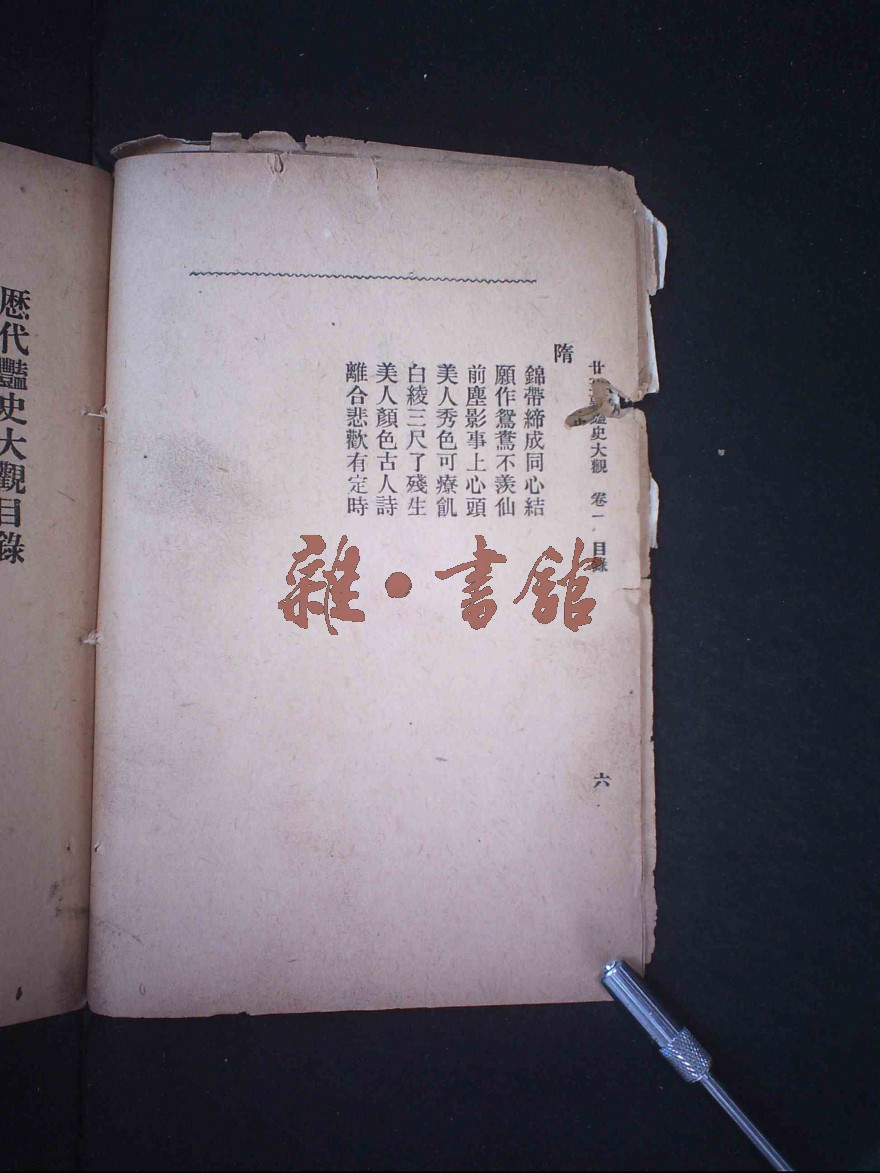 廿 史大觀 卷一 目錄
六
隋
錦帶締成同心結
願作鴛鴦不羨仙
前塵影事上心頭
美人秀色可療飢
白綾三尺了殘生
美人顏色古人詩
離合悲歡有定時
雜·書館
歷代豔史大觀目錄